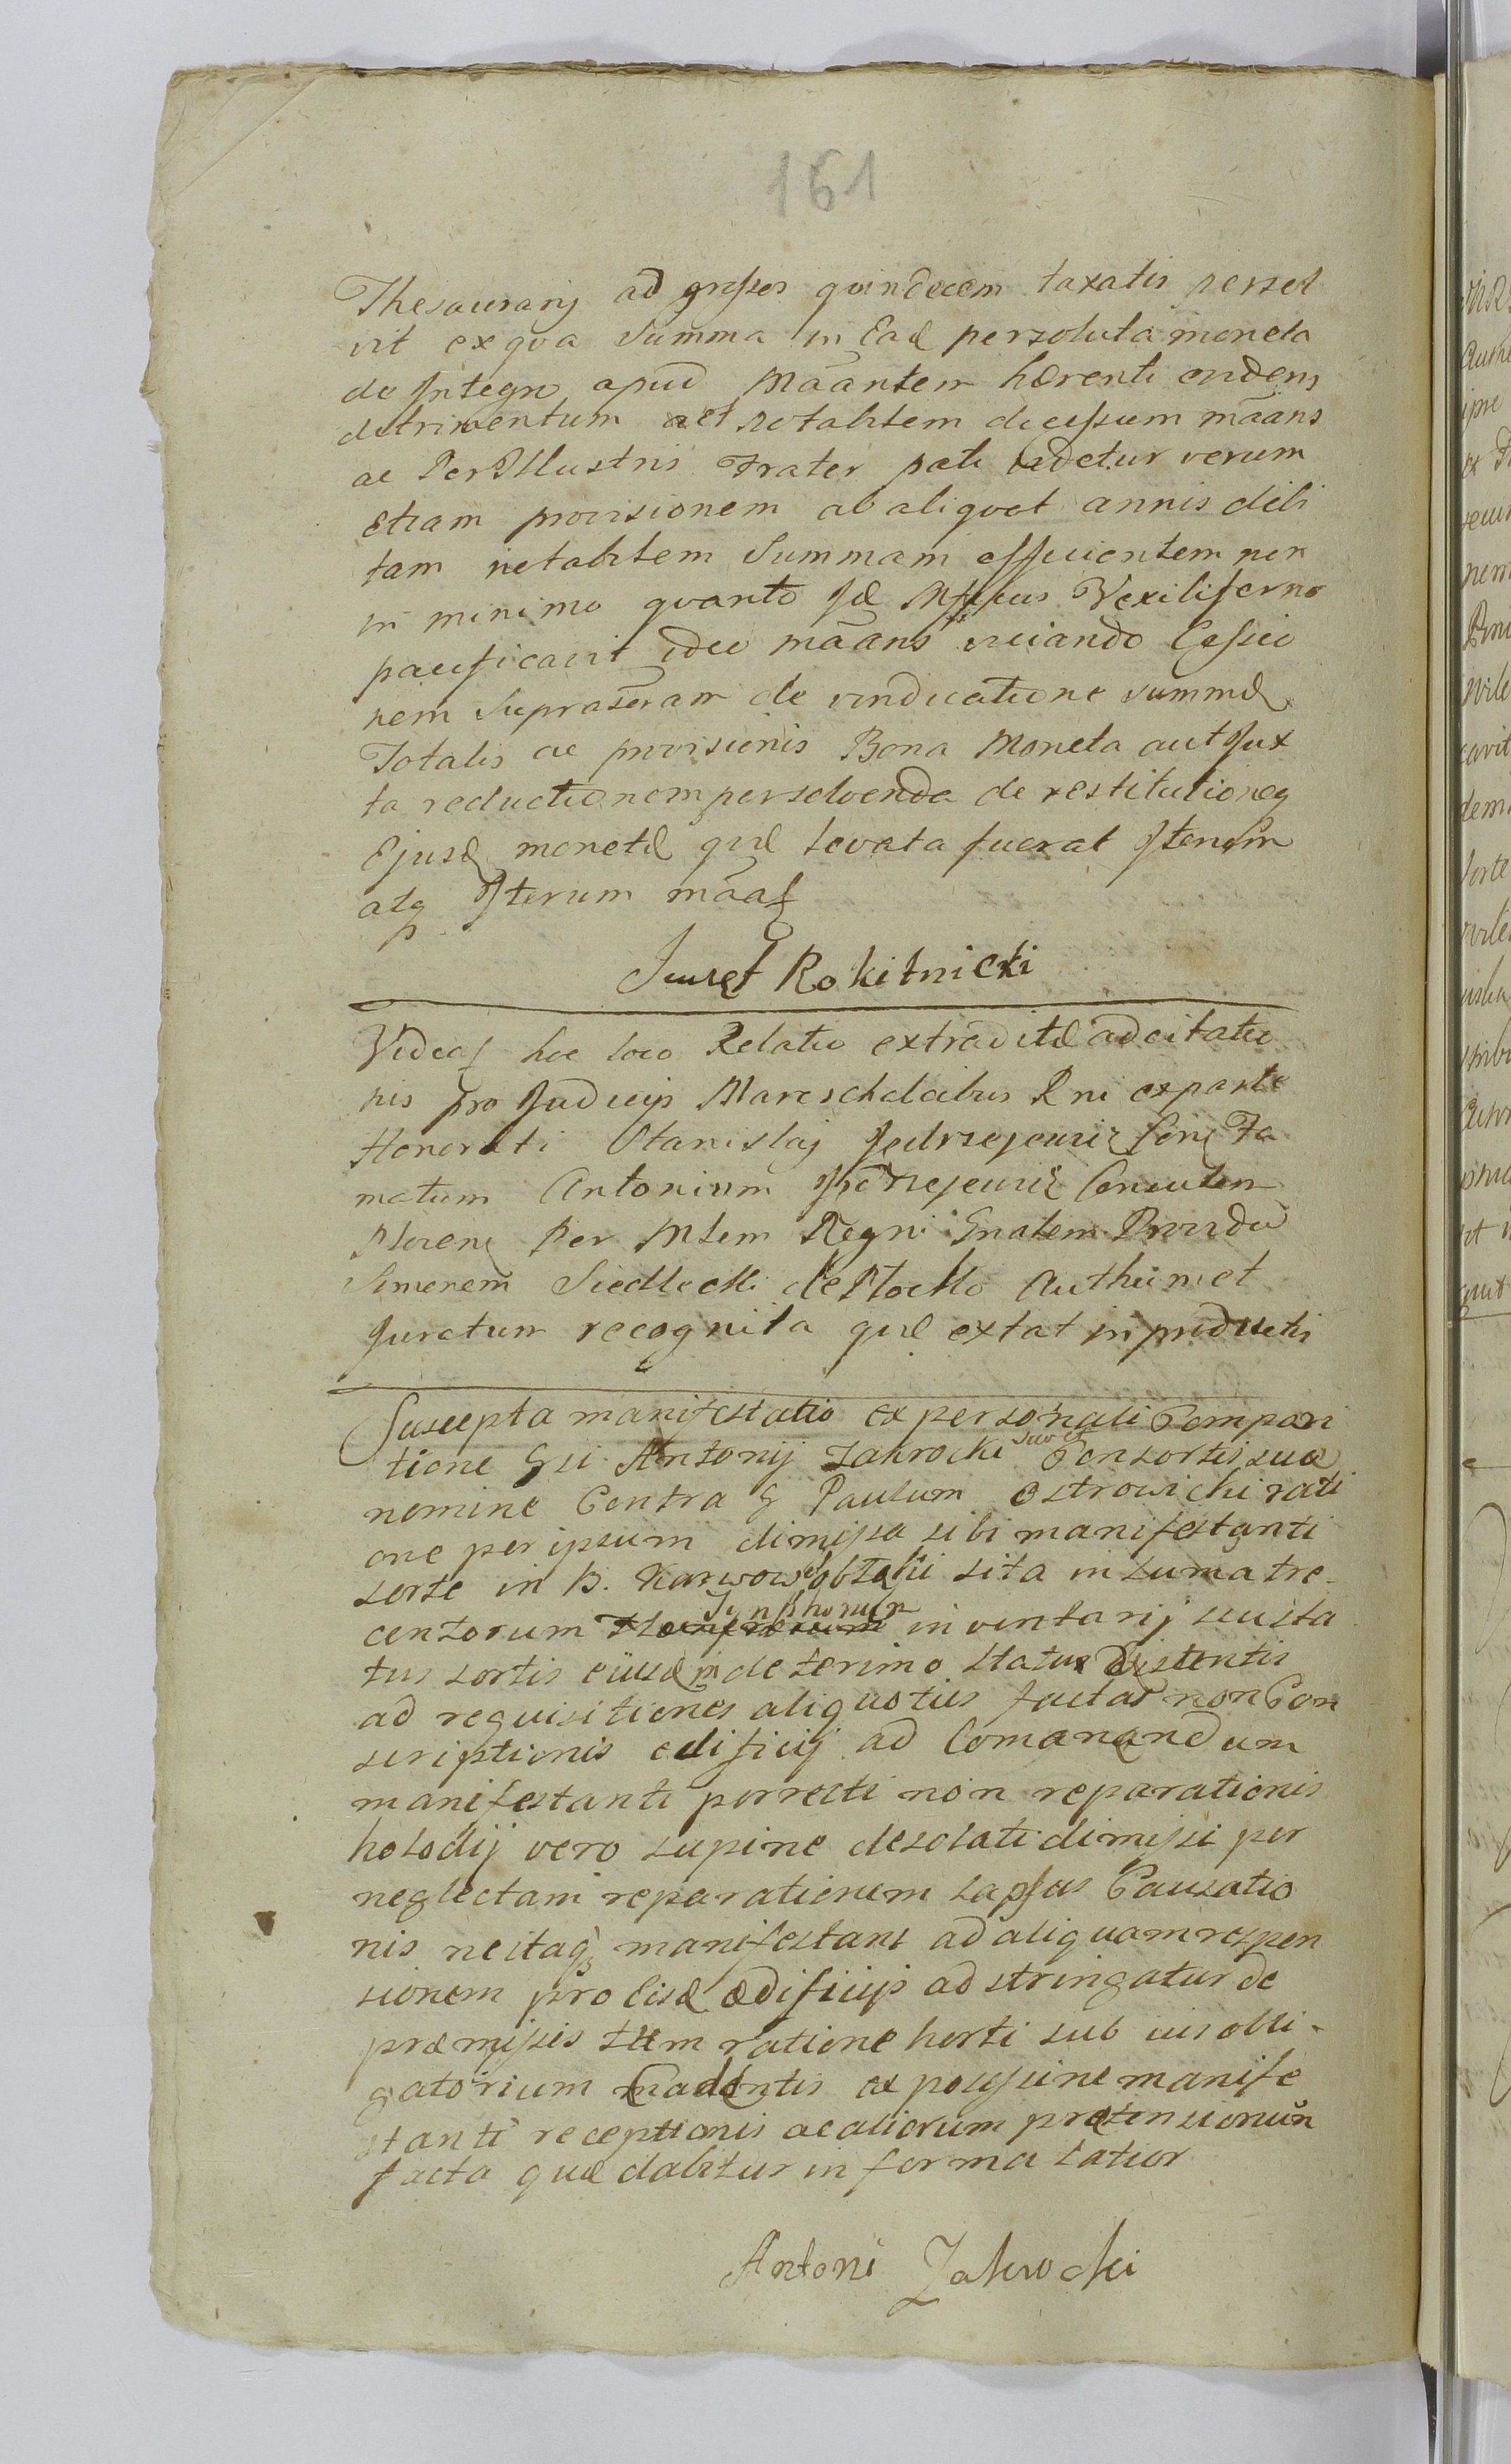 161
Thesaurarij ad grossos quindecem taxatis persol
vit ex qva Summa in Ead persoluta moneta
de Integro apud Mãantem hærenti
detrimentum et notabilem decessum mãans
ac PerIllustris Frater pati videtur verum
etiam provisionem ab aliqvot annis debi
tam notabilem Summam efficientem non
in minimo qvanto Vexilifero
pacificavit ideo mãans Cessio
nem de vindicatione summæ
Totalis ac provisionis Bona Moneta aut Jux
ta reductionem persolvenda de restitutioneq
Ejusd monetæ qvæ levata fuerat Iterum
atq Iterum mãat
Iuzef Rokitnicki
Videat hoc loco Relatio extraditæ adcitatio
nis pro Judicijs Mareschalcibus Rni ex parte
Honorati Stanislaj Jedrzejewicz Fa
matum Antonium Consulem
Plocen Per Mlem Regni Gnalem Providu
Simonem Siedlecki de Plocko Authen et
Juratum recognita qvæ extat in productis
Suscepta manifestatio ex personali Compari
tione Gsi Antonij Zakrocki suo et Consortis suæ
nomine Contra G Paulum Ostrowicki rati
one per ipsum dimissa sibi manifestanti
sorte in B. sita in suma tre
centorum inventarij
tus sortis eiusd in deterimo statu Existentis
ad requisitiones aliquoties factas non Con
scriptionis edificij ad Comanendum
manifestanti porrecti non reparationis
holodij vero supine desolati dimissi per
neglectam reparationem lapsus Causatio
nis ne itaq manifestans ad aliquam respon
sionem pro Eisd ædificijs adstringatur de
præmissis tum ratione horti sub ius obli-
gatorium Cadentis ex possessione manife
stanti receptionis ac aliorum prætensionum
facta quæ dabitur in forma latior
Antoni Zakrocki